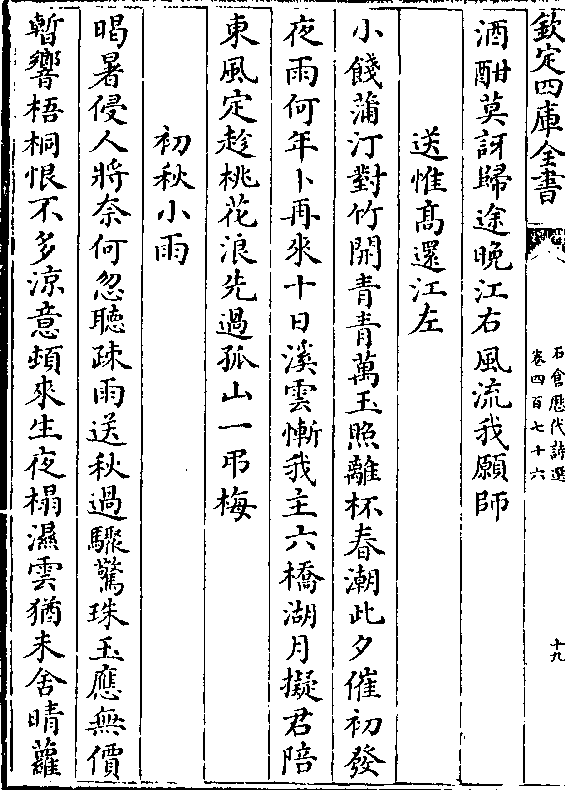 欽定四庫全書
石倉歷代詩選
卷四百七十六
十九
酒酣莫訝歸途晚江右風流我願師
送惟高還江左
小餞蒲汀對竹開青青萬玉照離杯春潮此夕催初發
夜雨何年卜再來十日溪雲慚我主六橋湖月擬君陪
東風定趁桃花浪先過孤山一弔梅
初秋小雨
暍暑侵人將奈何忽聽疎雨送秋過驟驚珠玉應無價
暫響梧桐恨不多涼意頓來生夜榻濕雲猶未舍晴蘿